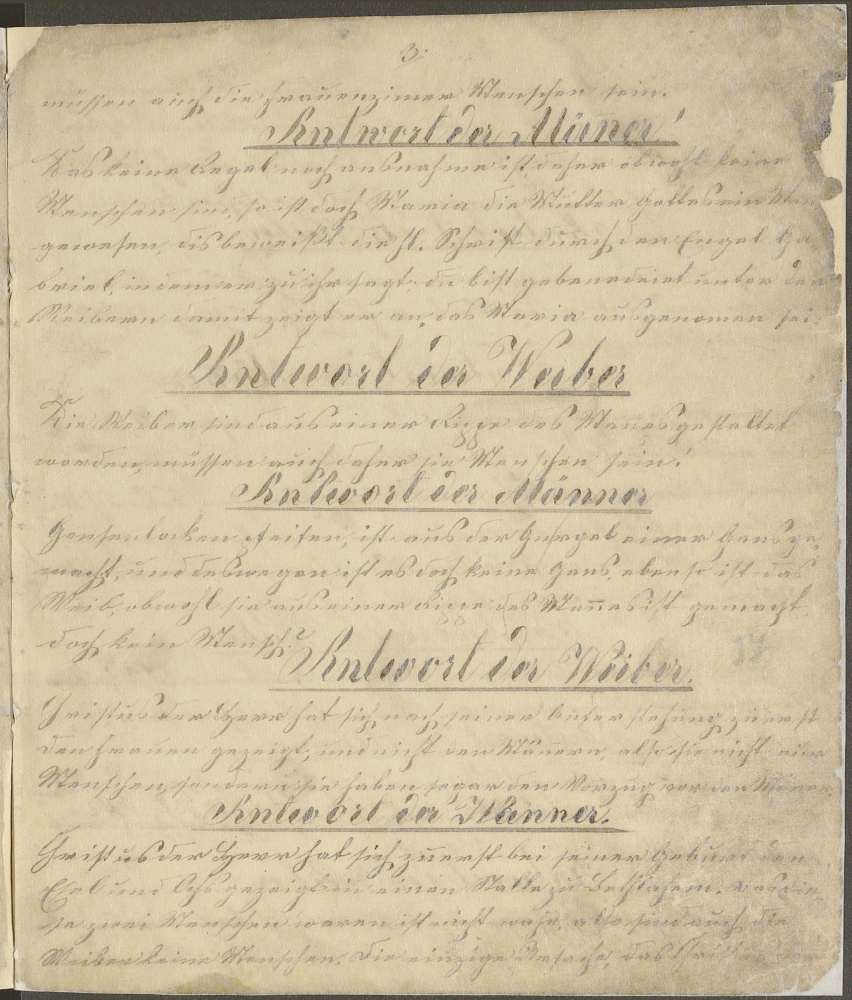 3.
müssen auch die Frauenzimer Menschen sein.
Antwort der Mäner!
Das keine Regel noch ausnahme ist, daher obwohl keine
Menschen sein, so ist doch Maria die Mutter Gottes ein
gewesen, dis beweißt die hl. Schrift durch den Engel Ga-
briel, indem er zu ihr sagt: du bist gebenedeiet unter den
Weibern damit zeigt er an, das Maria ausgenomen sei.
Antwort der Weiber
Die Weiber sind aus einer Rippe des Manes gestaltet
worden, müssen auch daher sie Menschen sein!
Antwort der Männer
ist aus der Gurgel einer Gans ge-
macht, und deswegen ist es doch keine Gans, ebenso ist das
Weib, obwohl sie aus einer Rippe des Mannes ist gemacht
doch kein Mensch?
Antwort der Weiber.
Cristus der Herr hat sich nach seiner Auferstehung zuerst
den Frauen gezeigt, und nicht den Mänern, also sie nicht nur
Menschen, sondern sie haben sogar den Vorzug vor den Mäner
Antwort der Männer.
Cristus der Herr hat sich zuerst bei seiner Geburt den
Esel und Ochs gezeigt in einen Stalle zu Bethlahem. das die-
se zwei Menschen waren ist nicht wahr, also sind auch die
Weiber keine Menschen. Die einzige Ursache, das Cristus